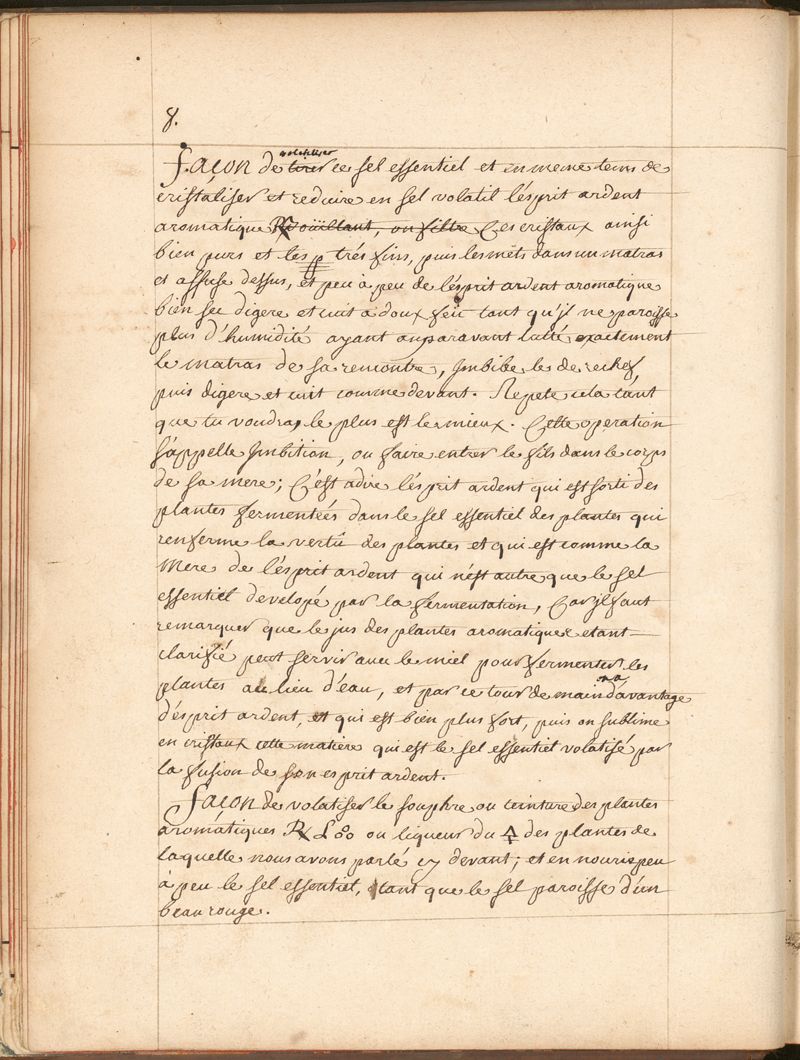 8.
volatiliser
Façon de tirer ce sel essentiel et en meme tems de
cristaliser et reduire en sel volatil l'ésprit ardent
aromatique ℞ boüillant, on filtre Ces cristaux ainsi
bien purs et les trés fins, puis les mets dans un matras
et affuse dessus, et peu à peu de l'ésprit ardent aromatique
bien sec digere et cuit a doux feu tant qu'jl ne paroisse
plus d'humidité ayant auparavant lutté exactement
le matras de sa remontre, Jmbibe le de rechef,
puis digere et cuit comme devant. Repete cela tant
que tu voudras, le plus est le mieux. Cette operation
s'appelle Jmbition, ou faire entrer le fils dans le corps
de sa mere; C'ést adire l'ésprit ardent qui est sorti des
plantes fermentées dans le sel essentiel des plantes qui
renferme la vertû des plantes et qui est comme la
Mere de l'ésprit ardent qui n'ést autre que le sel
essentiel developé par la fermentation, Car jl faut
remarquer que le jus des plantes aromatiques etant
clarifié peut servir avec le miel pour fermenter les
plantes au lieu d'eau, et par ce tour de main on a d'avantage
d'ésprit ardent, et qui est bien plus fort, puis on sublime
en cristaux cette matiere qui est le sel essentiel volatisé par
la fusion de son esprit ardent.
Façon de volatiser le souphre ou teinture des plantes
aromátiques ℞ L'oo ou liqueur du 🜍 des plantes de
laquelle nous avons parlé cy devant; et en nouris peu
à peu le sel essentiel, tant que le sel paroisse d'un
beau rouge.